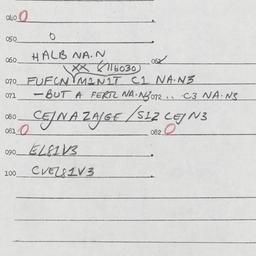 040 O
050 O
060 HALB NA.N 062
XX (116030)
070 FUFCN MINIT C1 NA.N3
071 -BUT A FERTL NA.N3 072 .. C3 NA.N3
080 CEJNAZAJGE / S12 CEJN3
081 O 082 O
090 EL81V3
100 CVEL81V3